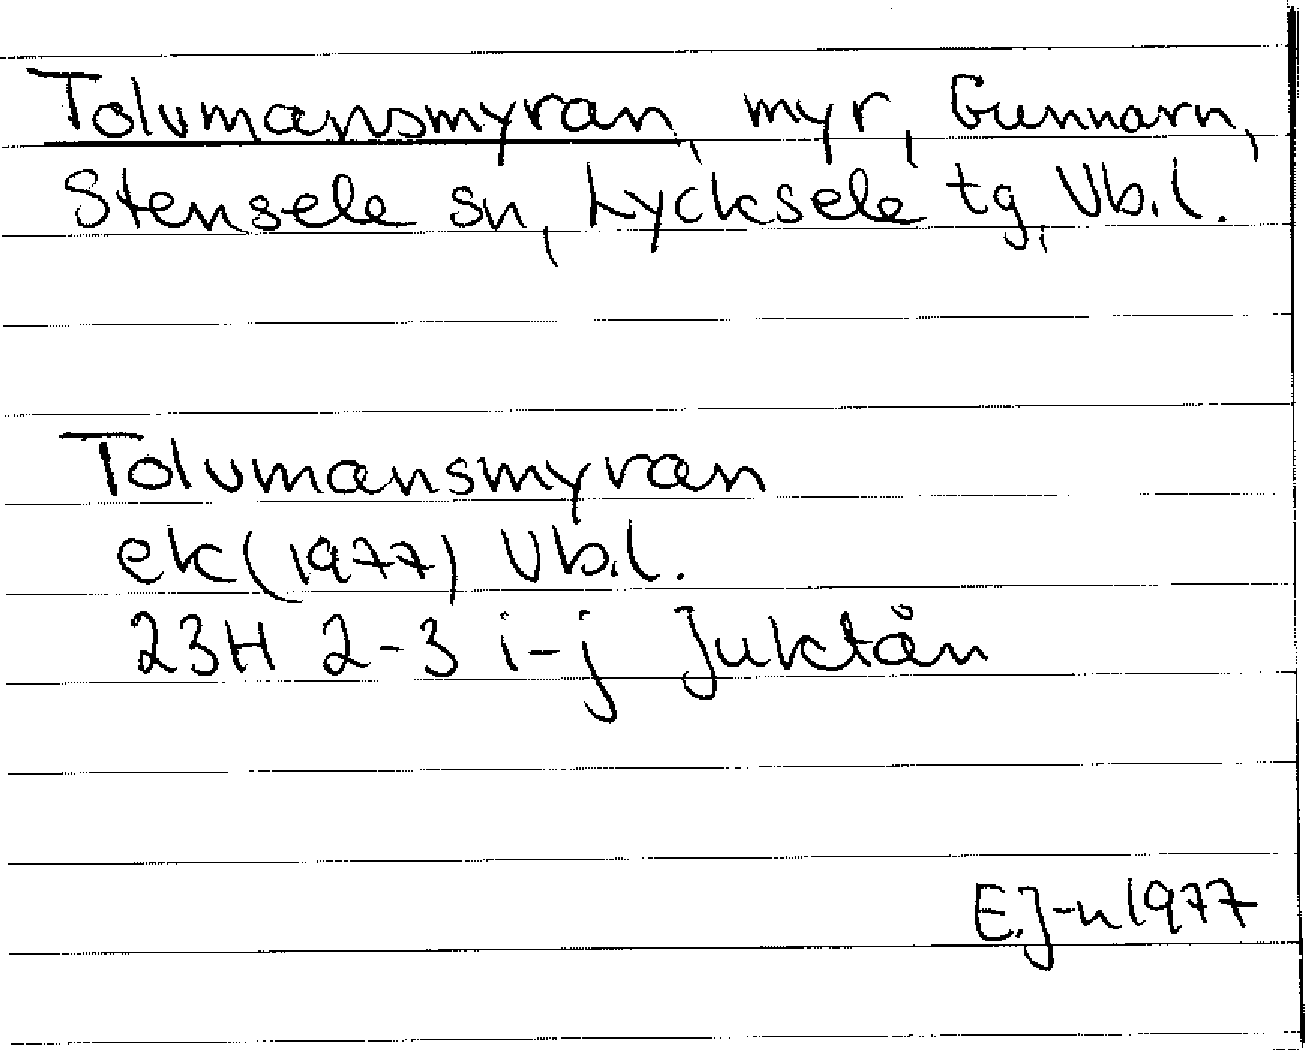 Tolvmansmyran, myr, Gunnarn,
Stensele sn, Lycksele tg, Vb.l.
Tolvmansmyran
ek (1977) Vb.l.
23H 2-3 i-j Juktån
E.J-n 1977